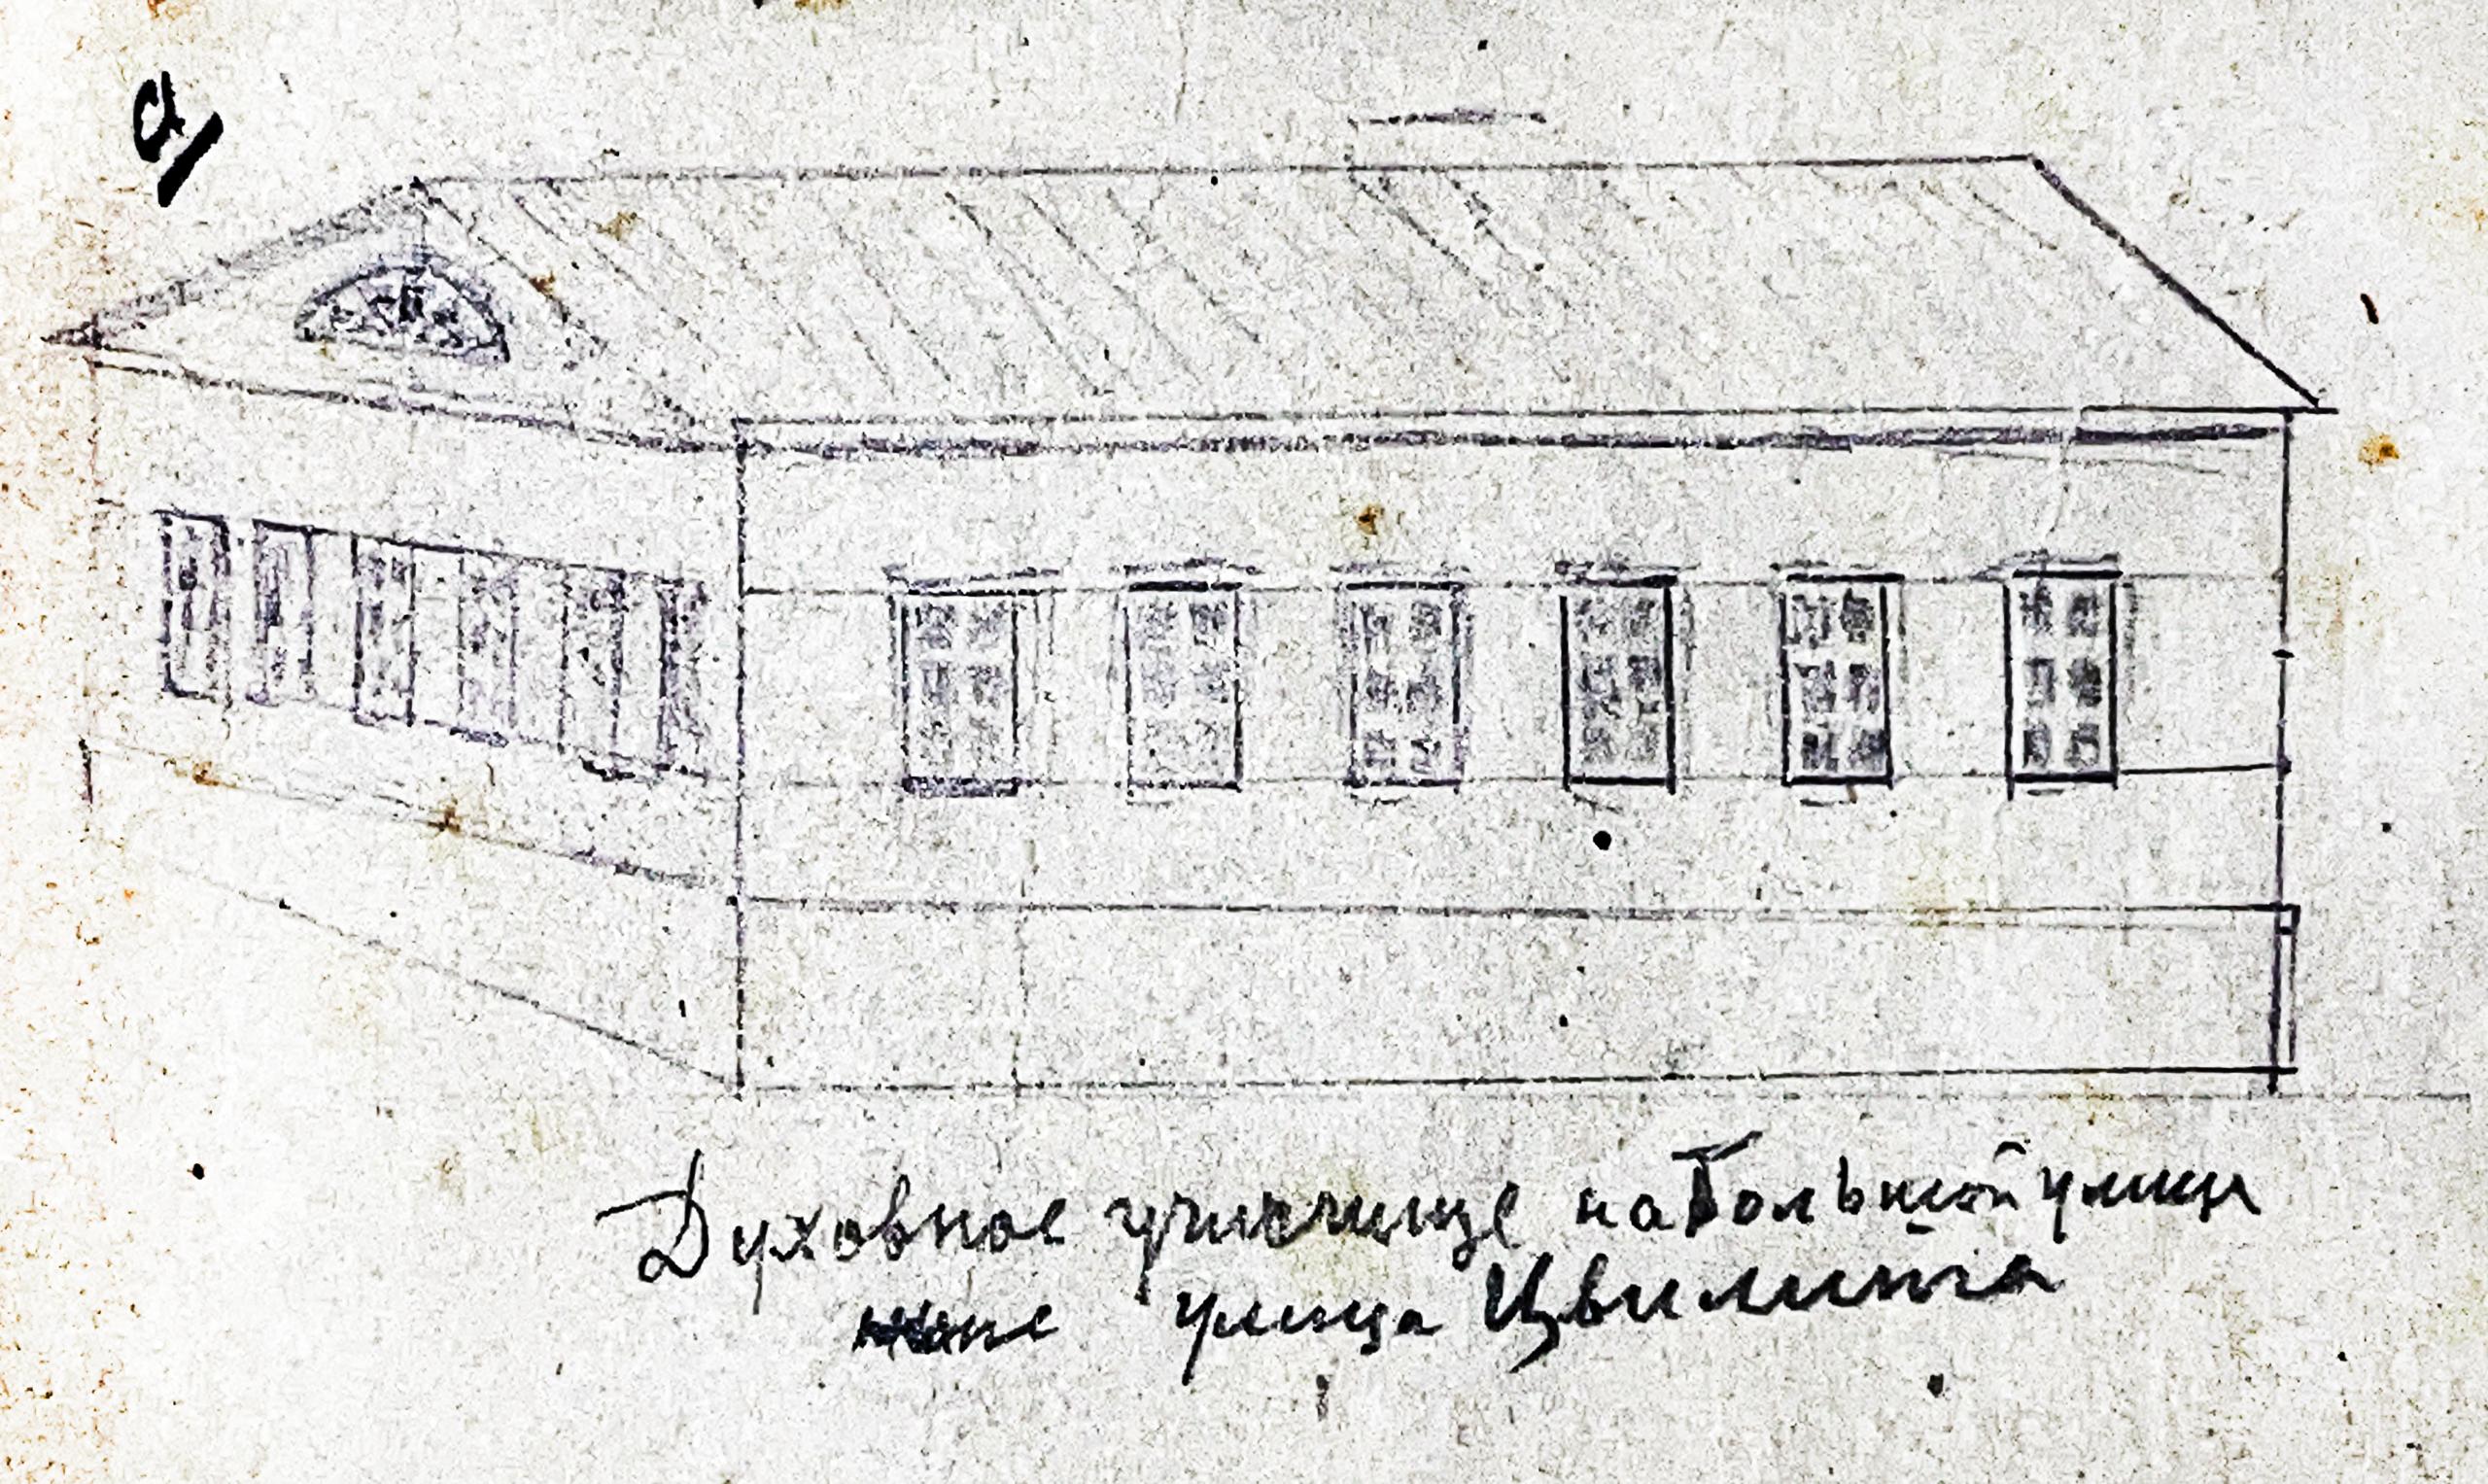 а)
Духовное училище на Большой улице
ныне улица Цвилинга